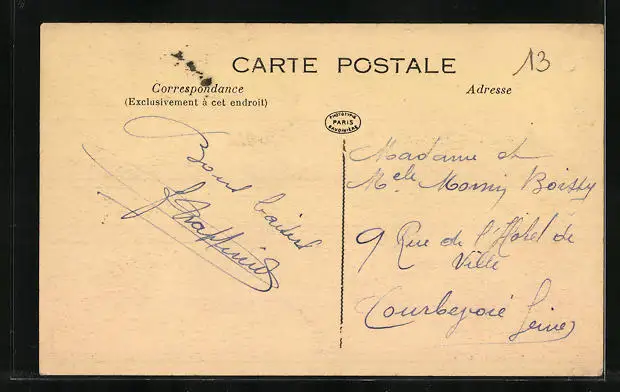 CARTE POSTALE
13
Correspondance
(Exclusivement à cet endroit)
Adresse
PHOTOTYPIE
PARIS
Bons baisers
Madame et
Melle Boissy
9 Rue de l'Hotel de
Ville
Courbevoie Seine